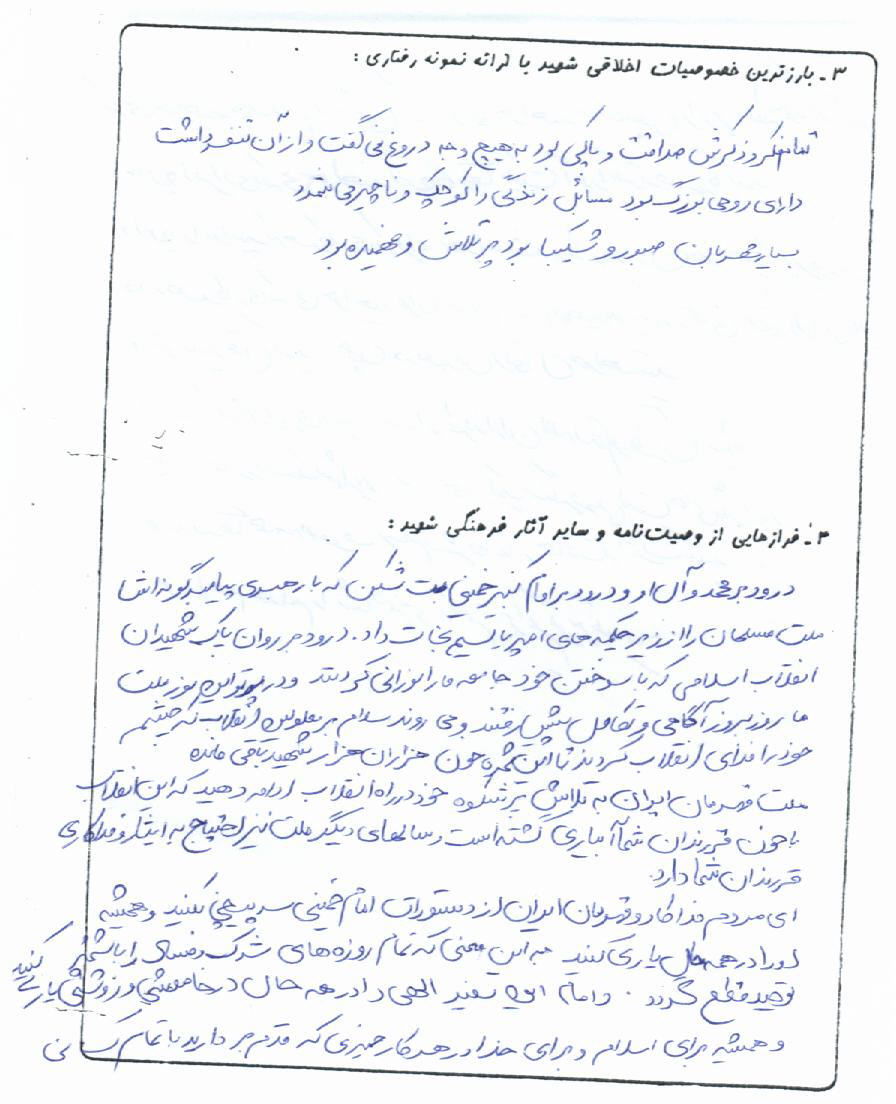 ۳ـ بارزترین خصوصیات اخلاقی شهید با ارائه نمونه رفتاری :
صداقت و پاکی بود به هیچ وجه دروغ نمی گفت و از آن تنفر داشت
دارای روحی بزرگ بود مسائل زندگی را کوچک و ناچیز می شمرد
بسیار مهربان صبور و شکیبا بود پر تلاش و فهمیده بود
۴ـ فرازهایی از وصیت‌نامه و سایر آثار فرهنگی شهید :
درود بر محمد و آل او و درود بر امام کبیر خمینی بت شکن که با رهبری پیامبرگونه‌اش
ملت مسلمان را از زیر چکمه های امپریالیسم نجات داد . درود بر روان پاک شهیدان
انقلاب اسلامی که با سوختن خود جامعه ما را نورانی کردند و در پرتو این نور ملت
ما روز بروز آگاهی و تکامل پیش رفتند و می روند سلام بر معلولین انقلاب که چشم
خود را فدای انقلاب کردند تا این ثمره خون هزاران هزار شهید باقی مانده
ملت قهرمان ایران به تلاش پر شکوه خود در راه انقلاب ادامه دهید که این انقلاب
با خون فرزندان شما آبیاری گشته است و سالهای دیگر ملت نیز احتیاج به ایثار و فداکاری
فرزندان شما دارد.
ای مردم فداکار و قهرمان ایران از دستورات امام خمینی سرپیچی نکنید و همیشه
او را در همه حال یاری کنید به این معنی که تمام روزه های شرک و فساد را با شمشیر
توحید قطع گردد . و امام این سفیر الهی را در همه حال در خاموشی و یاری کنید
و همیشه برای اسلام و برای خدا در هر کار خیری که قدم بر دارید با تمام کسانی